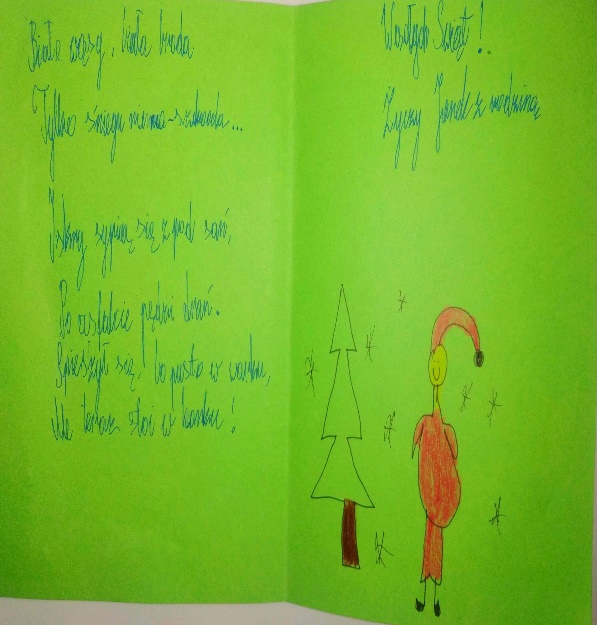 Białe wąsy, biała broda
Tylko śniegu niema-szkoda...
Iskry sypią się z pod sań,
Bo asfalcie pędzi drań.
Spieszył się, bo pusto w worku,
Ale teraz stoi w korku!
Wesołych Świąt!
Życzy Janek z rodziną